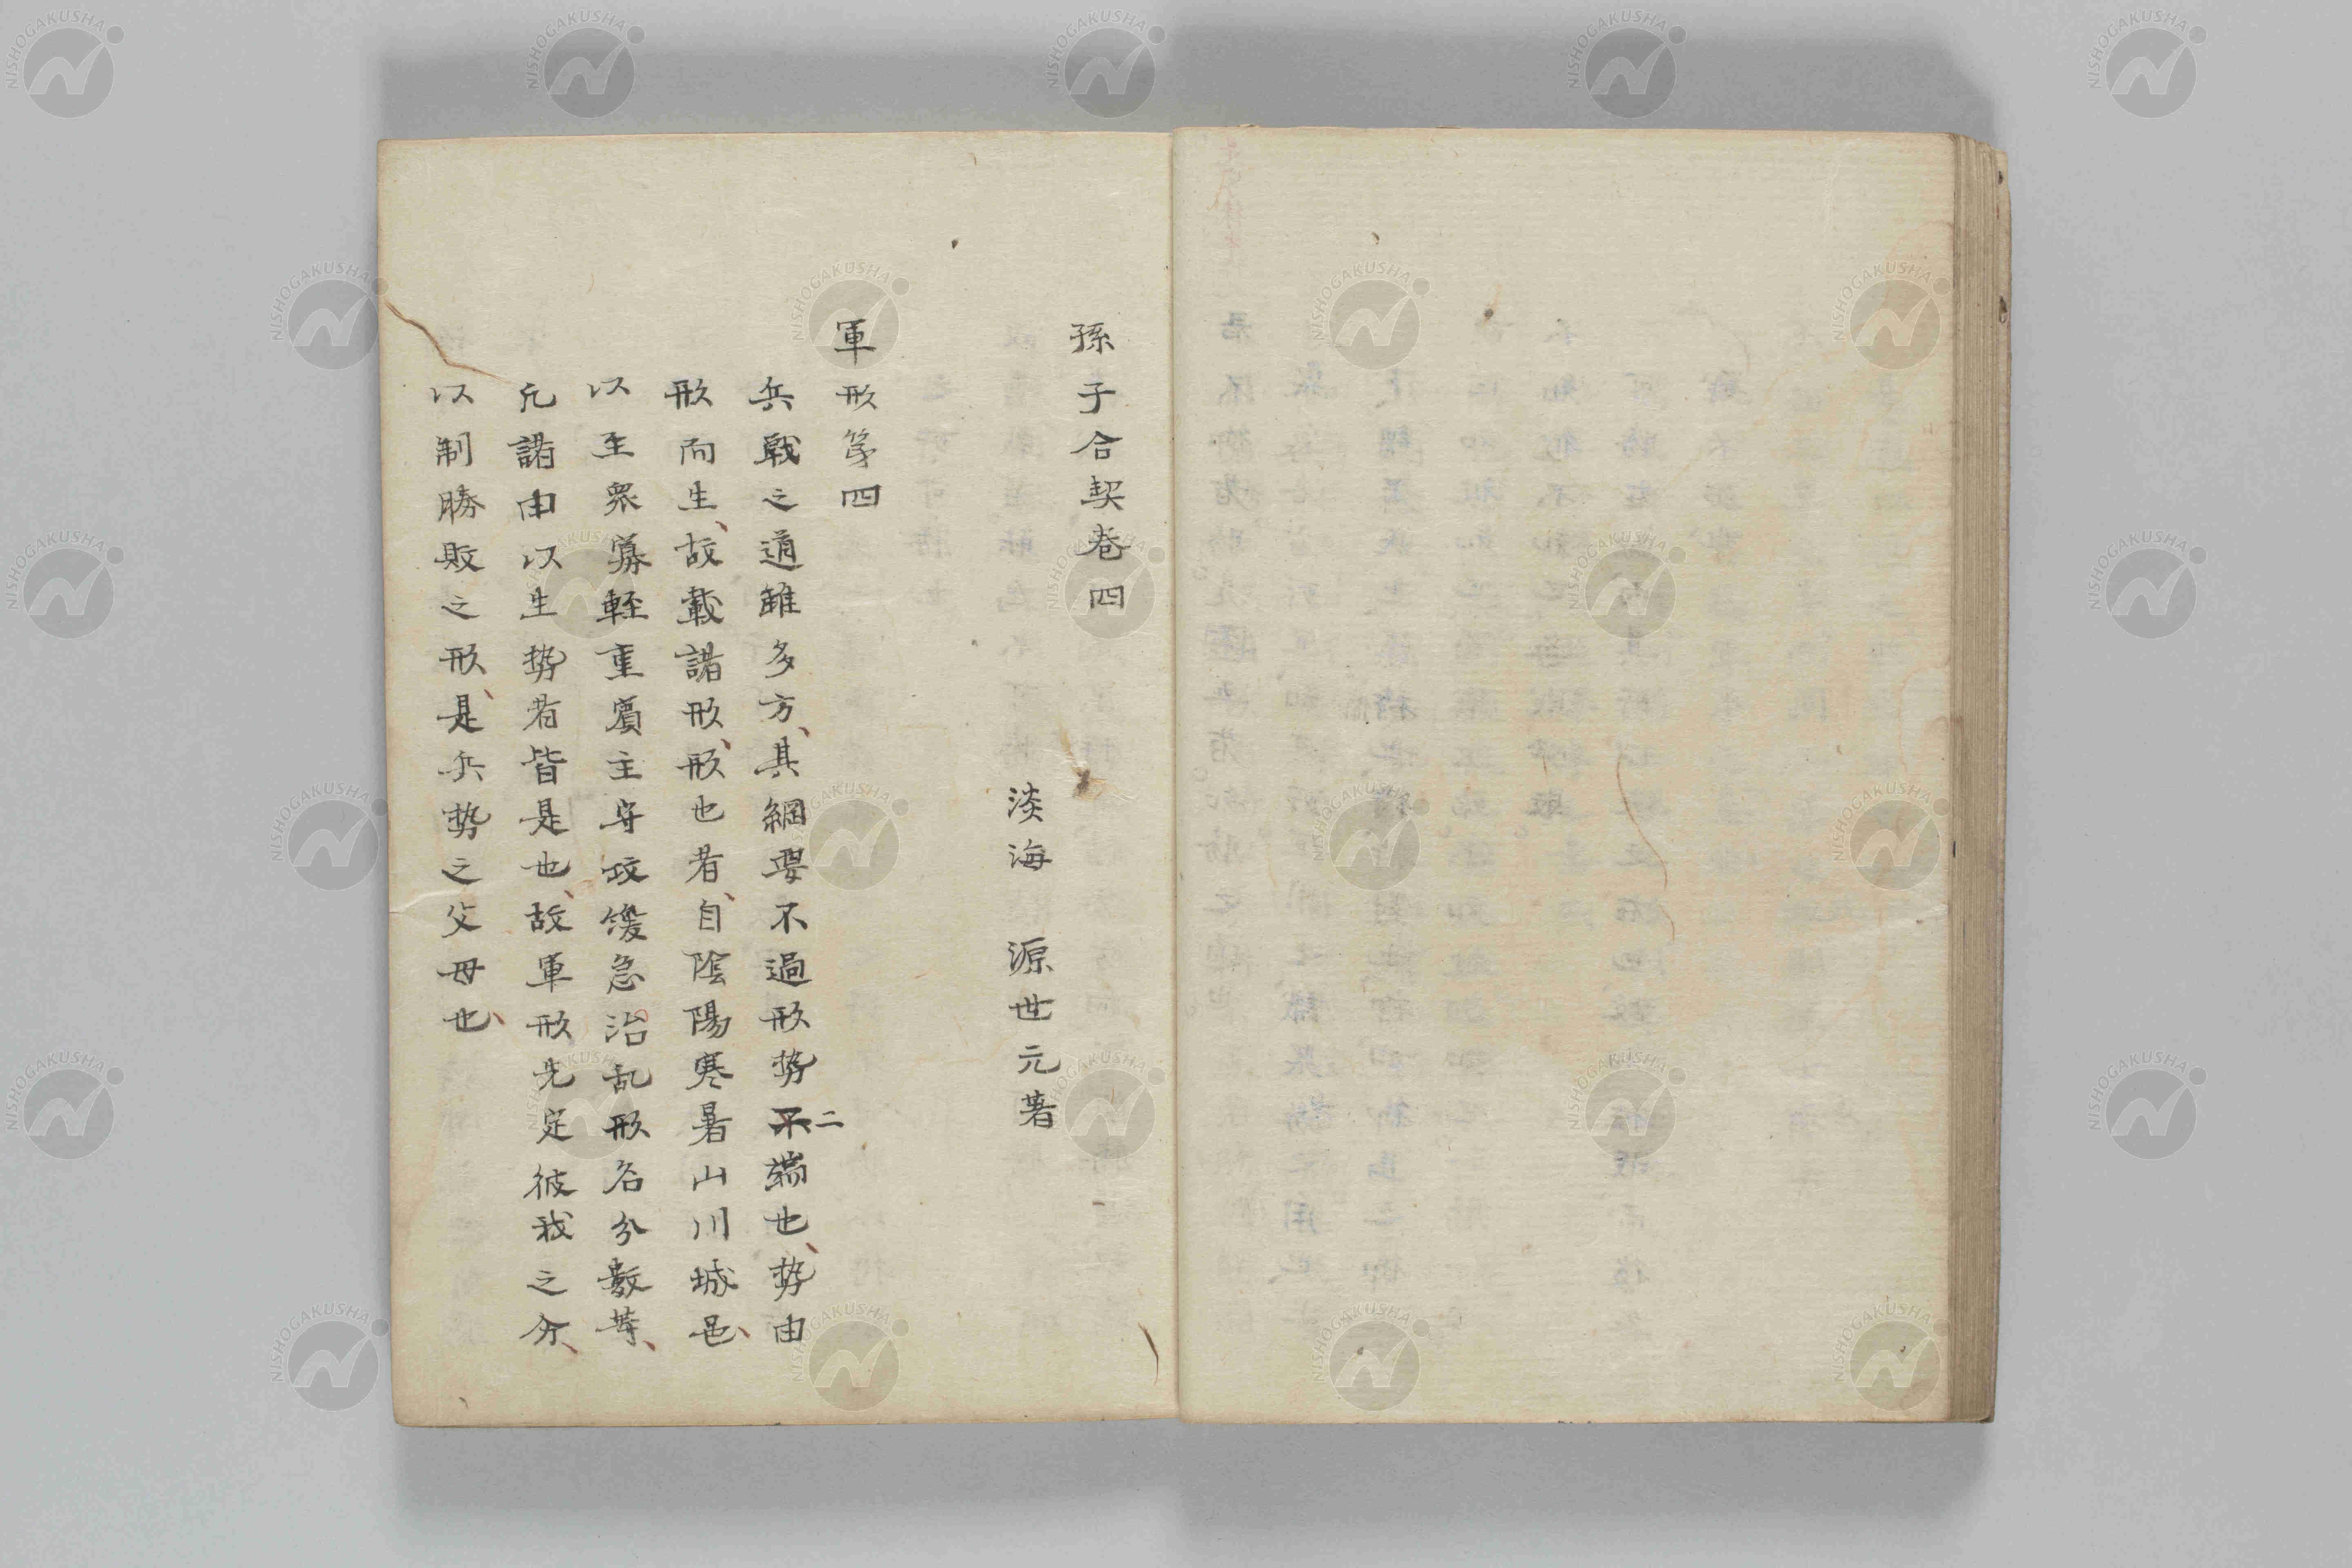 孫子合契卷四
淡海　源世元著
軍形第四
兵戰之道雖多方、其綱要不過形勢二端也、勢由
形而生、故載諸形、形也者、自陰陽寒暑山川城邑、
以至衆寡輕重賓主守攻緩急治乱形名分數等、
凡諸由以生勢者皆是也、故軍形先定彼我之分、
以制勝敗之形、是兵勢之父母也、
NISHOGAKUSHA